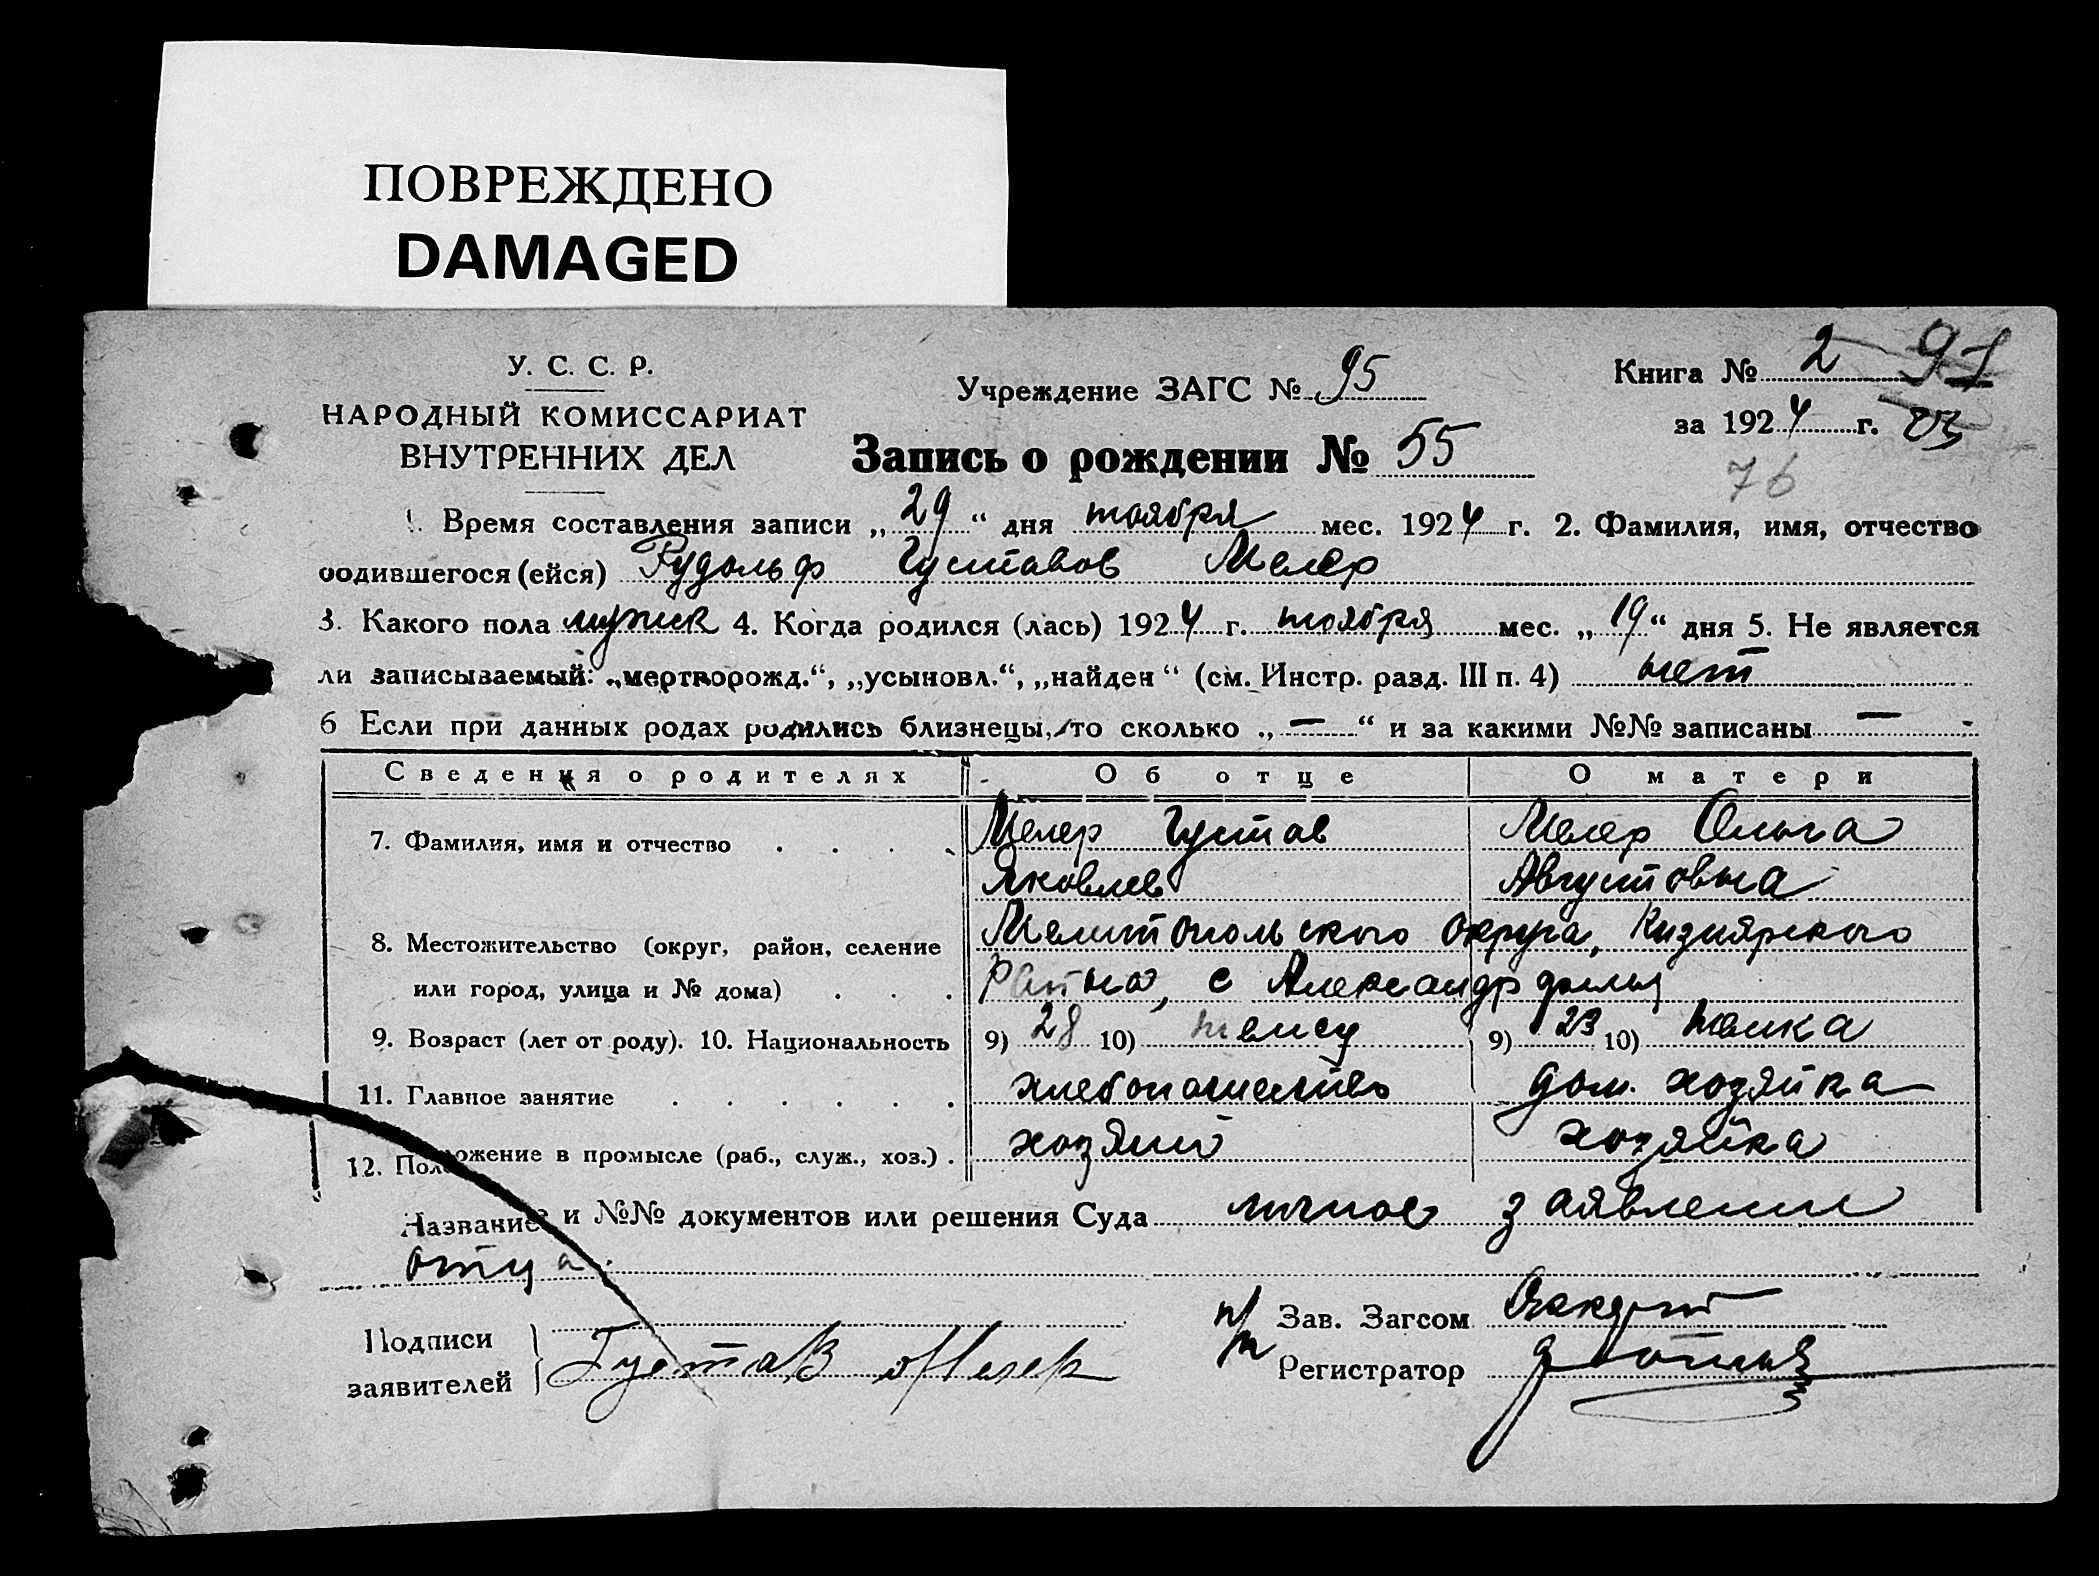 ПОВРЕЖДЕНО
DAMAGED
У. С. С. Р.
НАРОДНЫЙ КОМИССАРИАТ
ВНУТРЕННИХ ДЕЛ
Учреждение ЗАГС № 95
Запись о рождении № 55
Книга № 2 91
за 1924 г.
76
1. Время составления записи „29“ дня ноября мес. 1924 г. 2. Фамилия, имя, отчество
родившегося (ейся) Рудольф Густавов Мелер
3. Какого пола мужск 4. Когда родился (лась) 1924 г. ноября мес. „19“ дня 5. Не является
ли записываемый: „мертворожд.“, „усыновл.“, „найден“ (см. Инстр. разд. III п. 4) нет
6 Если при данных родах родились близнецы, то сколько „—“ и за какими №№ записаны —
Сведения о родителях Об отце О матери
7. Фамилия, имя и отчество Мелер Густав Мелер Ольга
Яковлев Августовна
8. Местожительство (округ, район, селение Мелитопольского округа, Кизиярского
или город, улица и № дома) района, с Александрфельд
9. Возраст (лет от роду). 10. Национальность 9) 28 10) немец 9) 23 10) немка
11. Главное занятие хлебопашество дом. хозяйка
12. Положение в промысле (раб., служ., хоз.) хозяин хозяйка
Название и №№ документов или решения Суда личное заявление
отца
Подписи
заявителей Густав Мелер
п/п Зав. Загсом
Регистратор